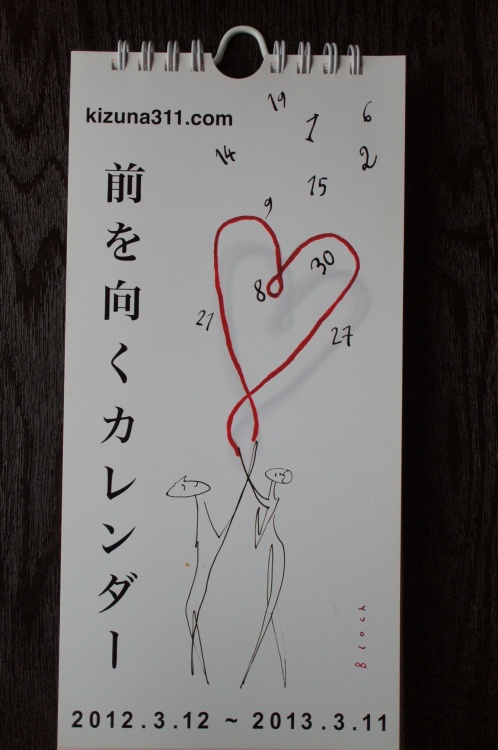 kizuna311.com
19
6
1
14
2
15
9
8
30
21
27
前を向くカレンダー
Bloch
2012.3.12 ~ 2013.3.11